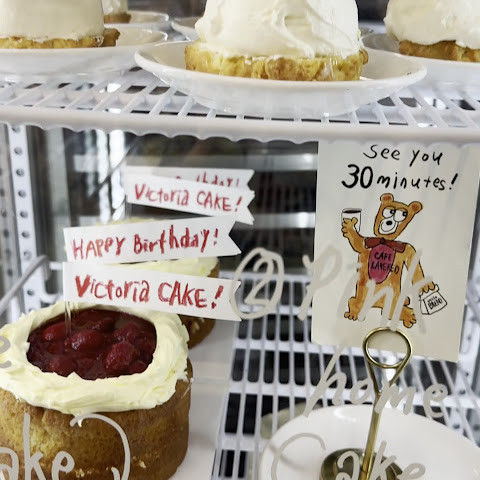 Birthday!
Victoria CAKE!
HAPPY Birthday!
Victoria CAKE!
See you
30 minutes!
CAFE
LAYERED
② Pink
home
Cake
ake)